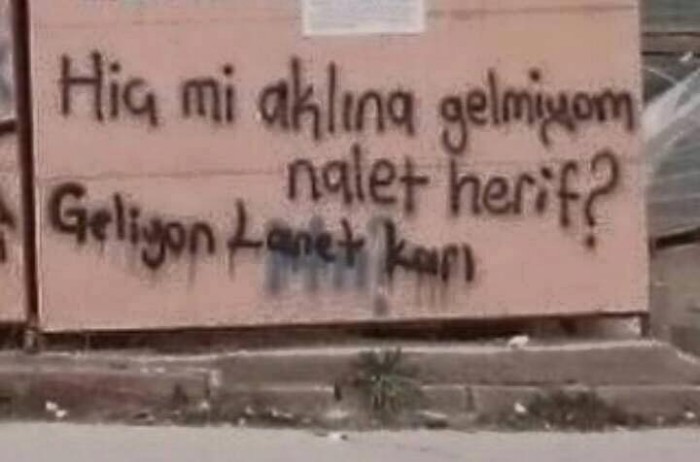 Hiç mi aklına gelmiyom
nalet herif?
Geliyon Lanet karı